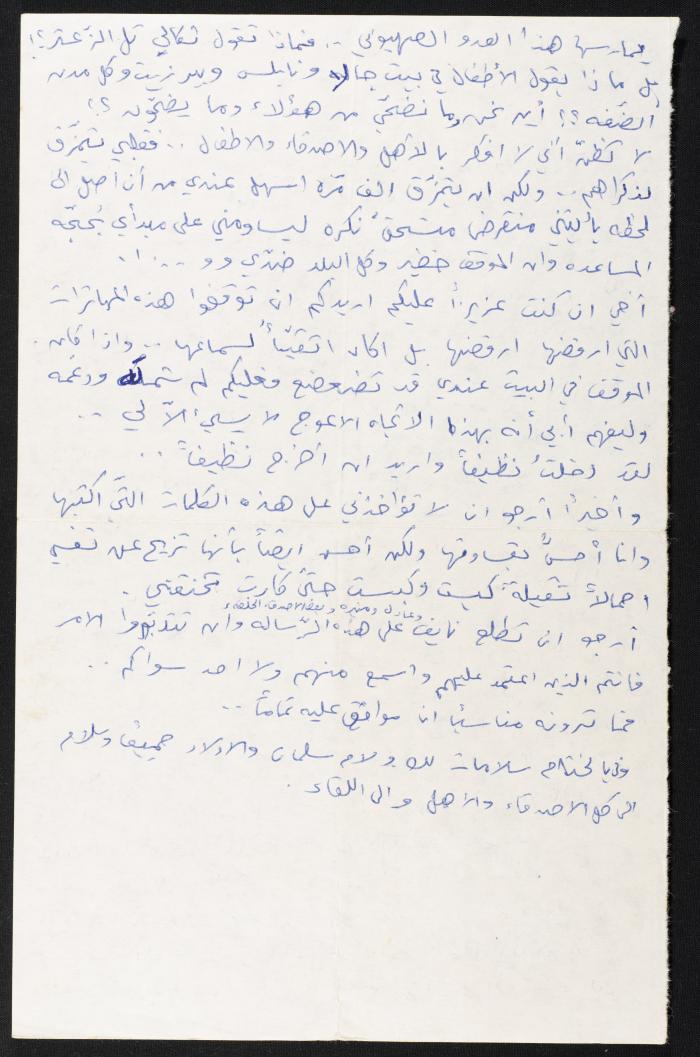 يمارسها هذا العدو الصهيوني .. فماذا تقول ثكالى تل الزعتر؟!
بل ماذا يقول الأطفال في بيت جالا ونابلس وبير زيت وكل مدن
الضفه؟؟ أين نحن وما نضحّي من هؤلاء وما يضحّون؟؟
لا تظنّ أني لا افكر بالأهل والاصدقاء والاطفال .. فقلبي يتمزّق
لذكراهم .. ولكن ان يتمزّق الف مرّه اسهل عندي من أن أصل الى
لحظه يأتيني منقرض نكره ليساومني على مبدأي بحجّة
المساعده وان الموقف خطير وكل البلد ضدّي و و ... !.
أخي ان كنت عزيزاً عليكم اريدكم ان توقفوا هذه المهاترات
التي ارفضها ارفضها بل اكاد اتقيّأ لسماعها .. واذا كان
الموقف في البيت عندي قد تضعضع فعليكم لم شمله ودعمه
وليفهم أبي أنه بهذا الاتجاه الاعوج لا يسيء الاّ لي ..
لقد دخلتُ نظيفاً واريد ان أخرج نظيفاً ..
وأخيراً أرجو ان لا تؤاخذني على هذه الكلمات التيّ اكتبها
وانا أحسُّ بقساوتها ولكن أحس ايضاً بأنها تزيح عن نفسي
احمالاً ثقيلة كبست وكبست حتىّ كادت تخنقني .
وعازل ومنيره وبعض الاصدقاء الخلصاء
أرجو ان تطلع نايف على هذه الرّساله وان تتدبّروا الامر
فانتم الذين اعتمد عليهم واسمع منهم ولا احد سواكم ..
فما ترونه مناسباً انا موافق عليه تماماً ..
وفي الختام سلامات لك ولام سلمان والاولاد جميعًا وسلام
الى كل الاصدقاء والاهل والى اللقاء .